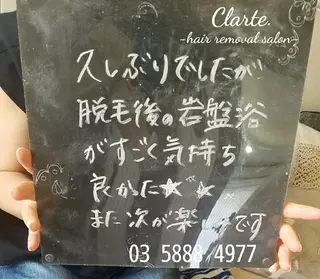 Clarte.
-hair removal salon-
久しぶりでしたが
脱毛後の岩盤浴
がすごく気持ち
良かた★☆
また次が楽しみです
03 5888 4977